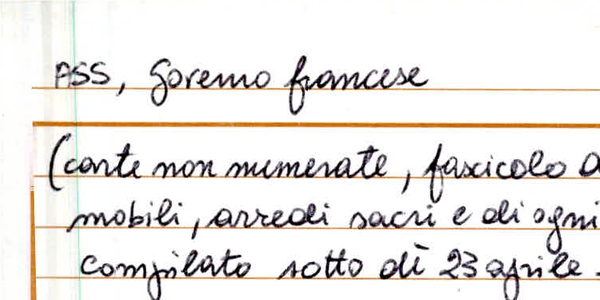 ASS, Governo francese
(carte non numerate, fascicolo
mobili, arredi sacri e di ogni
compilato sotto dì 23 aprile